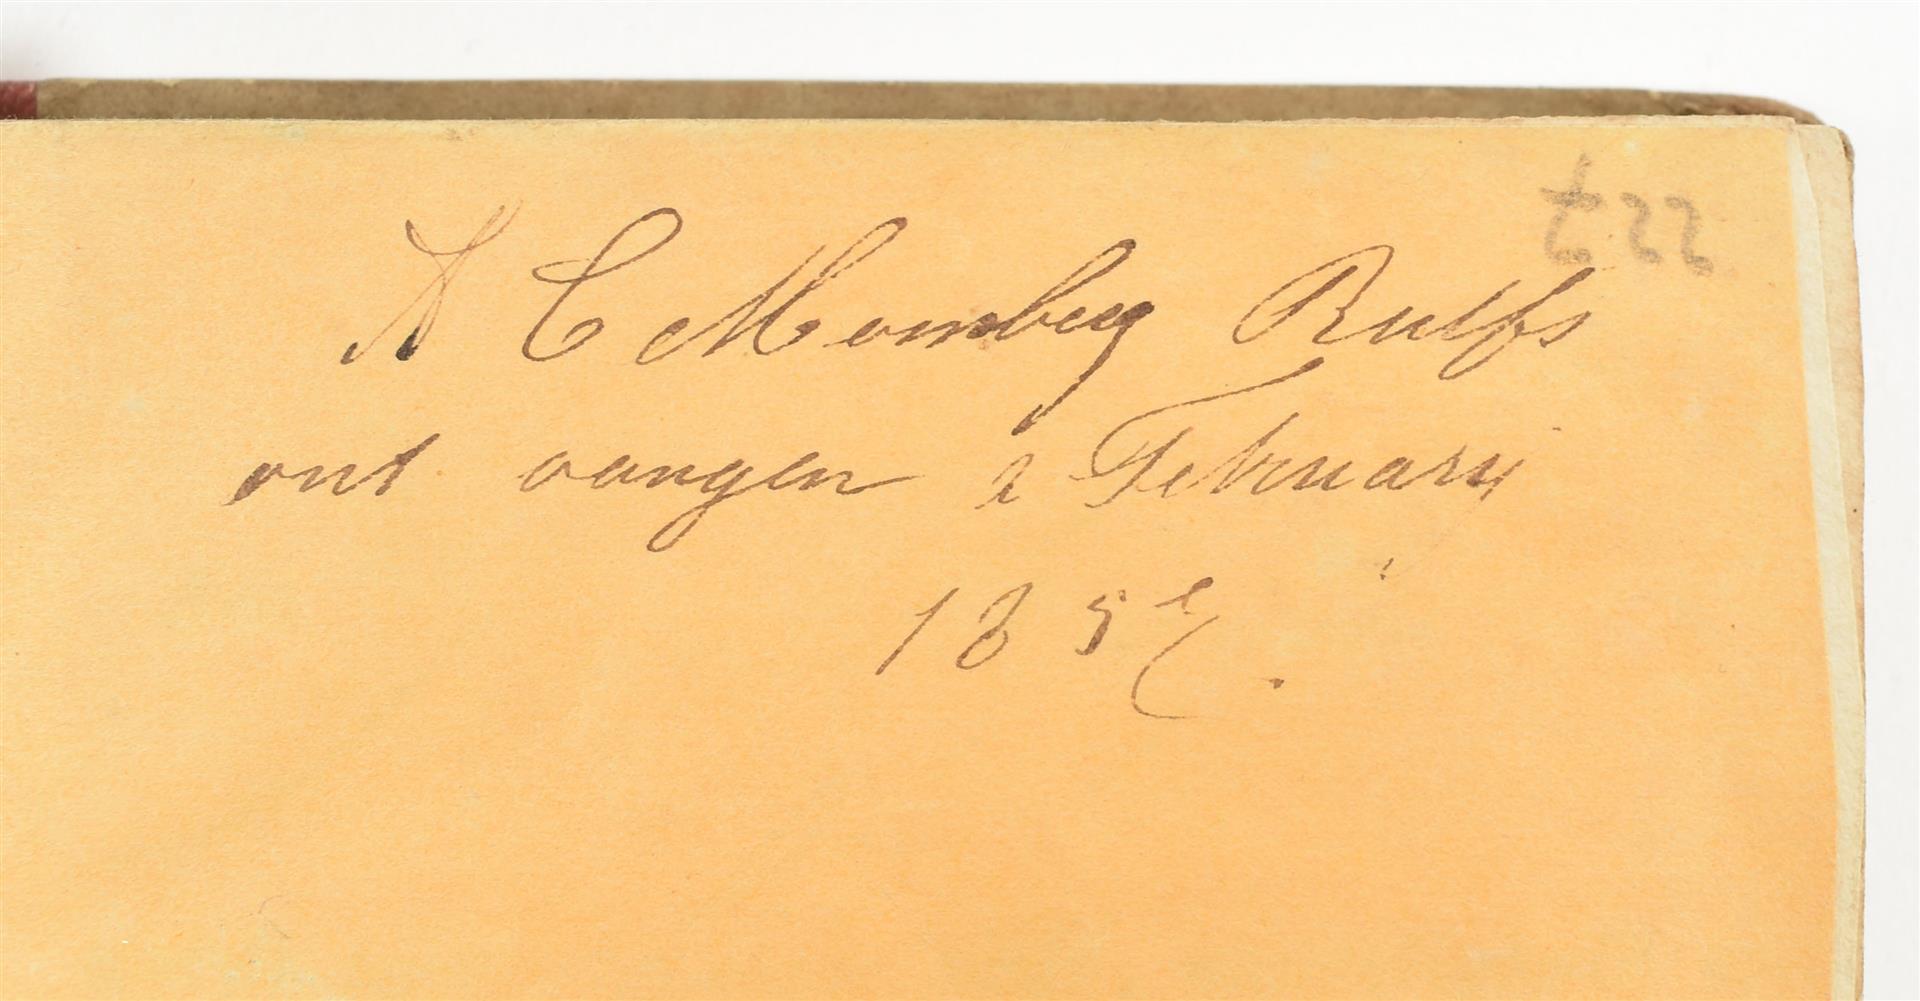 t22
A C Momberg Rulffs
ont vangen 2 February
185